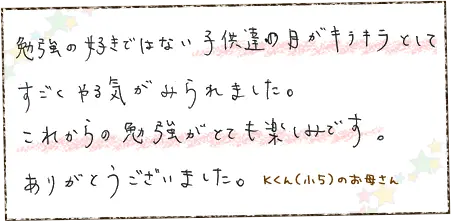 勉強の好きではない子供達の目がキラキラとして
すごくやる気がみられました。
これからの勉強がとても楽しみです。
ありがとうございました。 Kくん(小5)のお母さん